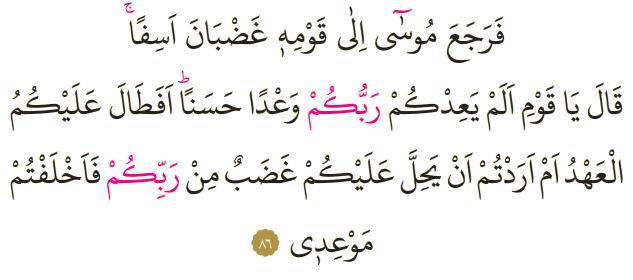 فَرَجَعَ مُوسٰٓى اِلٰى قَوْمِهٖ غَضْبَانَ اَسِفًاۚ
قَالَ يَا قَوْمِ اَلَمْ يَعِدْكُمْ رَبُّكُمْ وَعْدًا حَسَنًاۜ اَفَطَالَ عَلَيْكُمُ
الْعَهْدُ اَمْ اَرَدْتُمْ اَنْ يَحِلَّ عَلَيْكُمْ غَضَبٌ مِنْ رَبِّكُمْ فَاَخْلَفْتُمْ
مَوْعِدٖى ٨٦